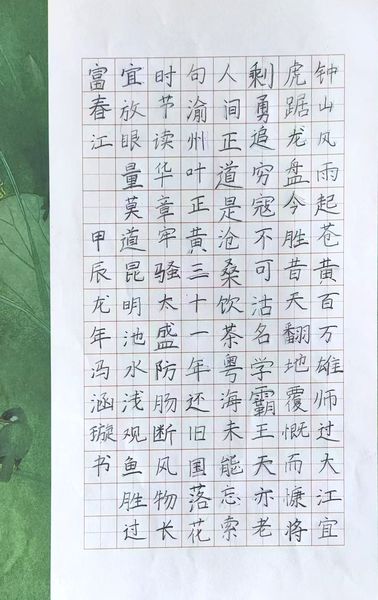 钟山风雨起苍黄百万雄师过大江宜
虎踞龙盘今胜昔天翻地覆慨而慷将
剩勇追穷寇不可沽名学霸王天亦老
人间正道是沧桑饮茶粤海未能忘索
句渝州叶正黄三十一年还旧国落花
时节读华章牢骚太盛防肠断风物长
宜放眼量莫道昆明池水浅观鱼胜过
富春江 甲辰龙年冯涵璇书